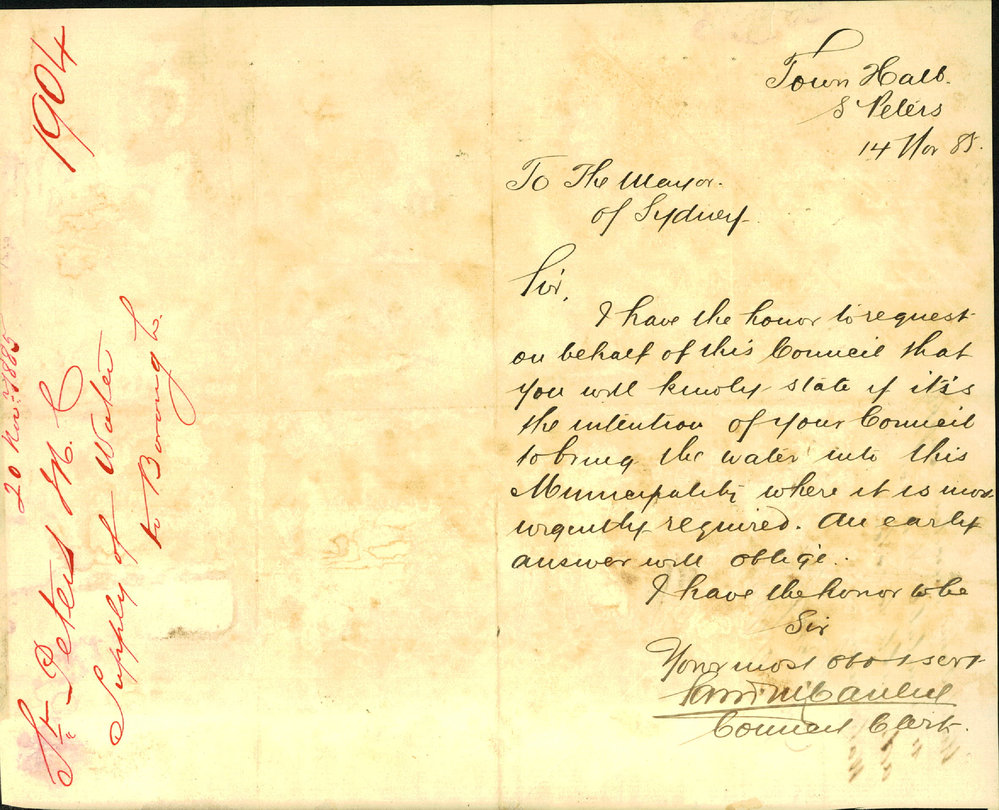 Town Hall.
St Peters
14 Nov 85.
To The Mayor.
of Sydney.
Sir,
I have the honor to request
on behalf of this Council that
you will kindly state if it's
the intention of your Council
to bring the water into this
Municipality where it is most
urgently required. An early
answer will oblige.
I have the honor to be
Sir
Your most obdt servt
Council Clerk.
1904
20 Nov. 1885
St. Peters M. C
Supply of Water
to Borough to.